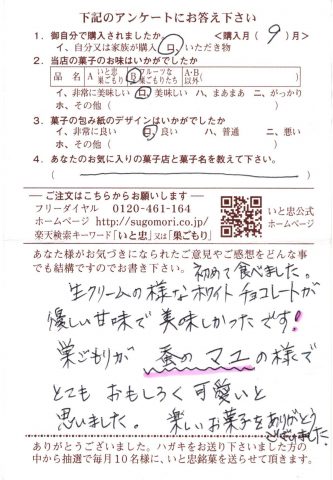 下記のアンケートにお答え下さい
1. 御自分で購入されましたか。 <購入月(9)月>
イ、自分又は家族が購入 ロ、いただき物
2. 当店の菓子のお味はいかがでしたか
品名 A いと忠巣ごもり B フルーツな巣ごもりたち A・B以外( )
イ、非常に美味しい ロ、美味しい ハ、まあまあ ニ、がっかり
ホ、その他( )
3. 菓子の包み紙のデザインはいかがでしたか
イ、非常に良い ロ、良い ハ、普通 ニ、悪い
ホ、その他( )
4. あなたのお気に入りの菓子店と菓子名を教えて下さい。
( )
ご注文はこちらからお願いします
フリーダイヤル 0120-461-164
ホームページ http://sugomori.co.jp/
楽天検索キーワード「いと忠」又は「巣ごもり」
いと忠公式
ホームページ
あなた様がお気づきになられたご意見やご感想をどんな事
でも結構ですのでお書き下さい。
初めて食べました。
生クリームの様なホワイトチョコレートが
優しい甘味で美味しかったです!
巣ごもりが 蚕のマユの様で
とてもおもしろく可愛いと
思いました。楽しいお菓子をありがとう
ございました
ありがとうございました。ハガキをお送り下さいました方
の中から抽選で毎月10名様に、いと忠銘菓を送らせて頂きます。